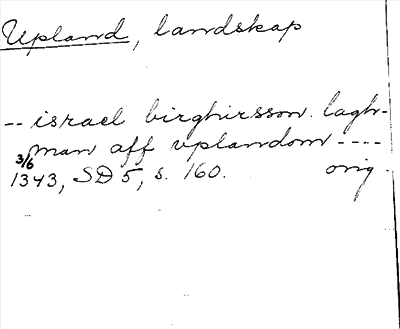 Upland, landskap
-- israel birghirsson. lagh-
man aff vplandom ----
3/6
1343, SD 5, s. 160. orig.